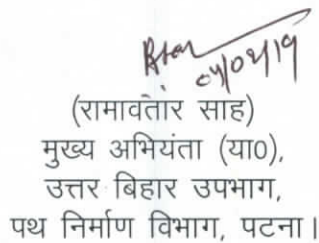 04/02/19
(रामावतार साह)
मुख्य अभियंता (या0),
उत्तर बिहार उपभाग,
पथ निर्माण विभाग, पटना।